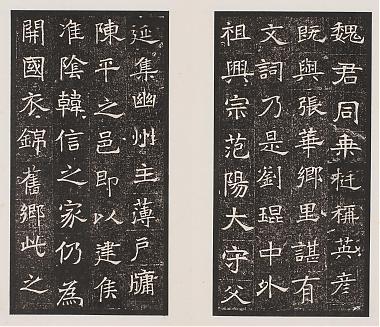 魏君同乗挺稱英彦
既與張華鄉里諶有
文詞乃是劉琨中外
祖興宗范陽大守父
延集幽州主薄戶牖
陳平之邑即以建侯
淮陰韓信之家仍為
開國衣錦舊鄉此之